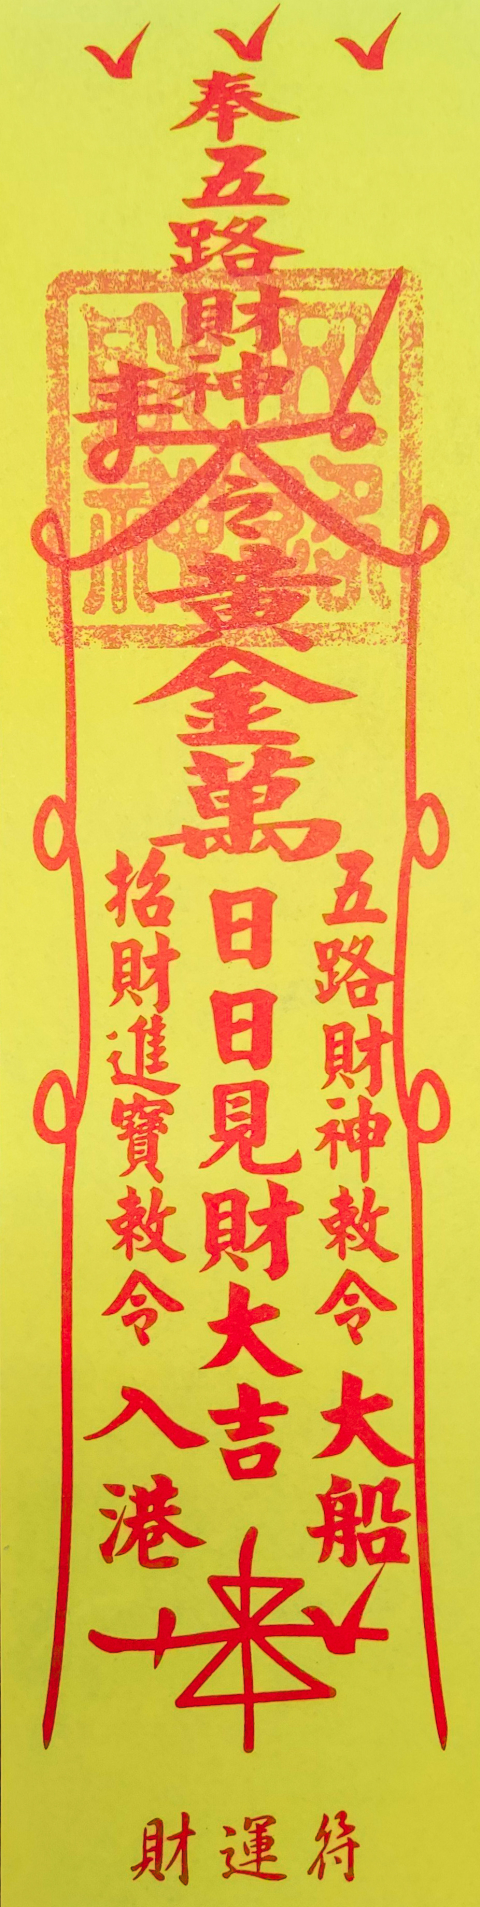 奉五路財神
令
黃金萬
五路財神敕令
日日見財大吉
招財進寶敕令
大船
入港
財運符